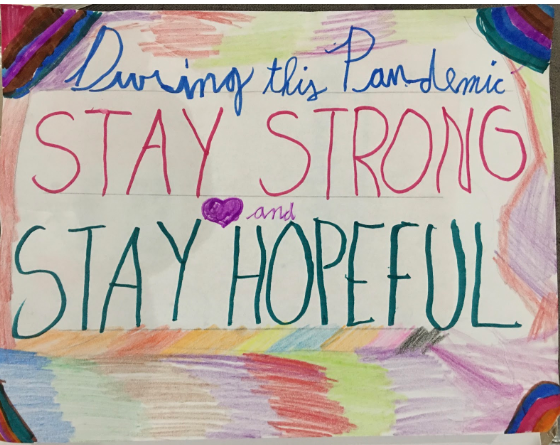 During this Pandemic
STAY STRONG
and
STAY HOPEFUL